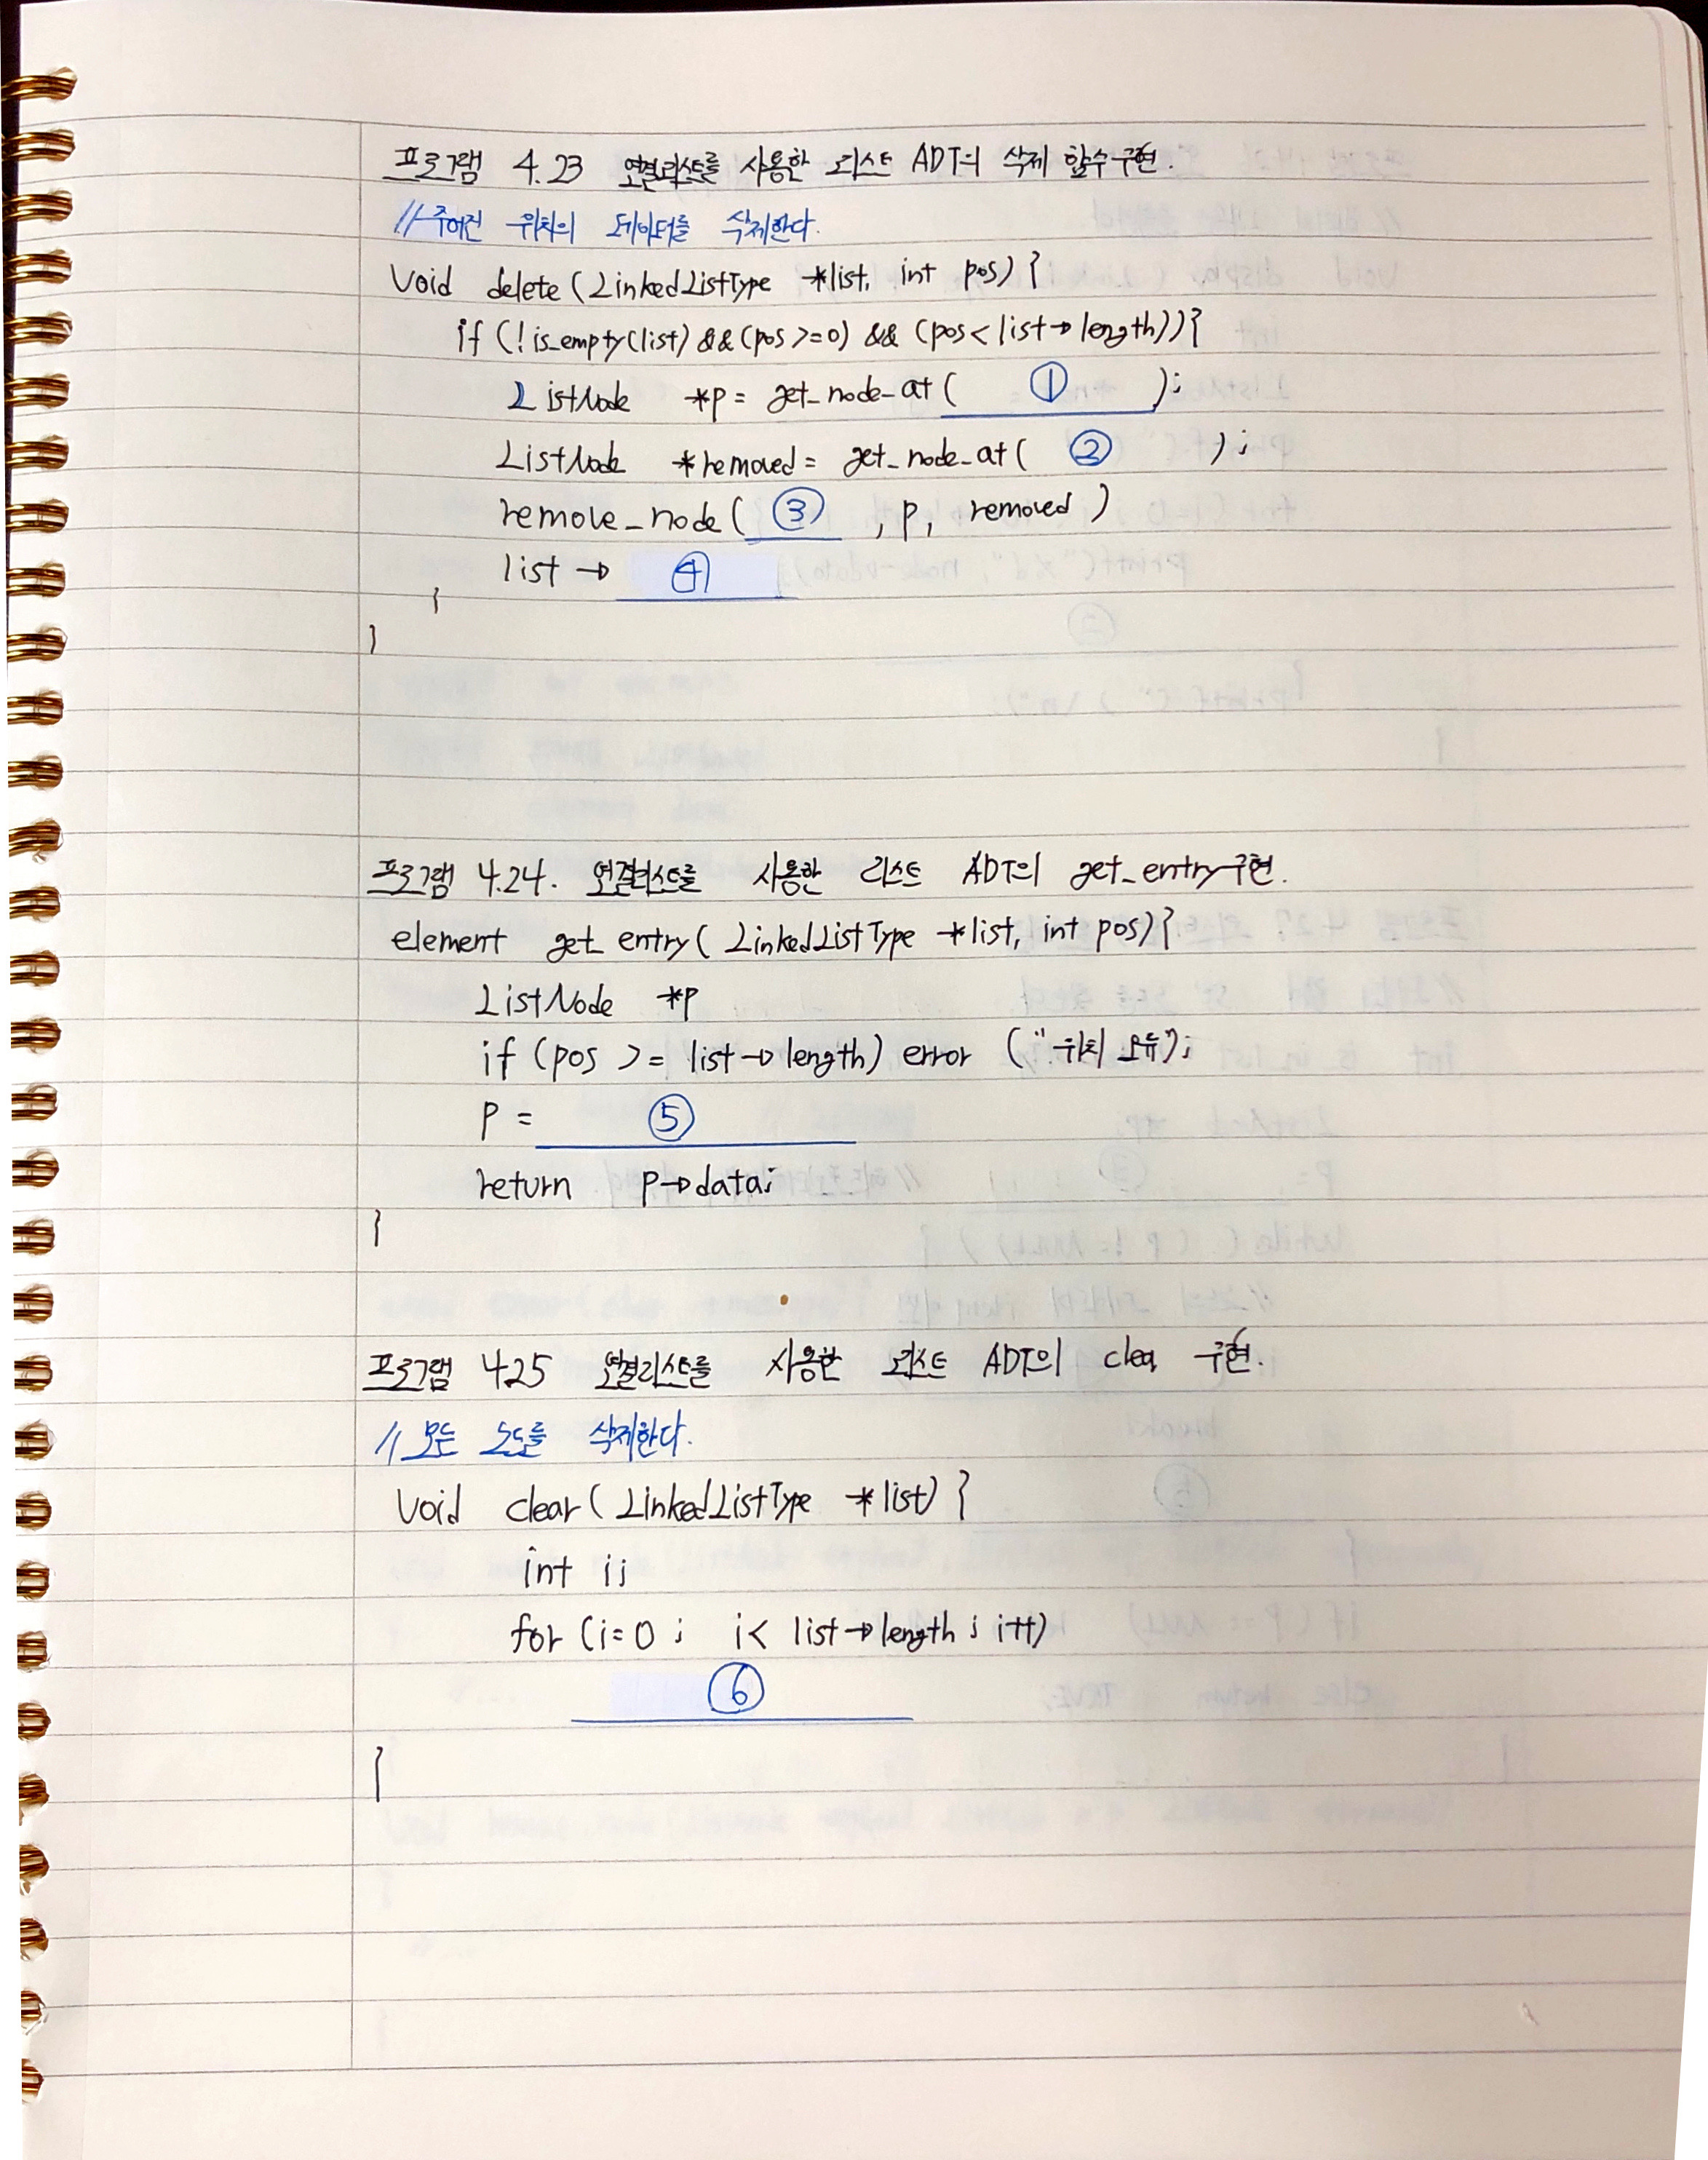 프로그램 4.23 연결리스트를 사용한 리스트 ADT의 삭제 함수 구현.
// 주어진 위치의 데이터를 삭제한다.
void delete (LinkedListType *list, int pos) {
if (! is_empty(list) && (pos >=0) && (pos < list→length)){
ListNode *p = get_node_at ( ① );
ListNode *removed = get_node_at ( ② );
remove_node ( ③ , p, removed )
list → ④
}
}
프로그램 4.24. 연결리스트를 사용한 리스트 ADT의 get_entry 구현.
element get_entry ( LinkedListType *list, int pos) {
ListNode *p
if (pos >= list→length) error ("위치 오류");
p = ⑤
return p→data;
}
프로그램 4.25 연결리스트를 사용한 리스트 ADT의 clea 구현.
// 모든 노드를 삭제한다.
void clear ( LinkedListType *list) {
int i;
for (i=0 ; i< list→length ; i++)
⑥
}